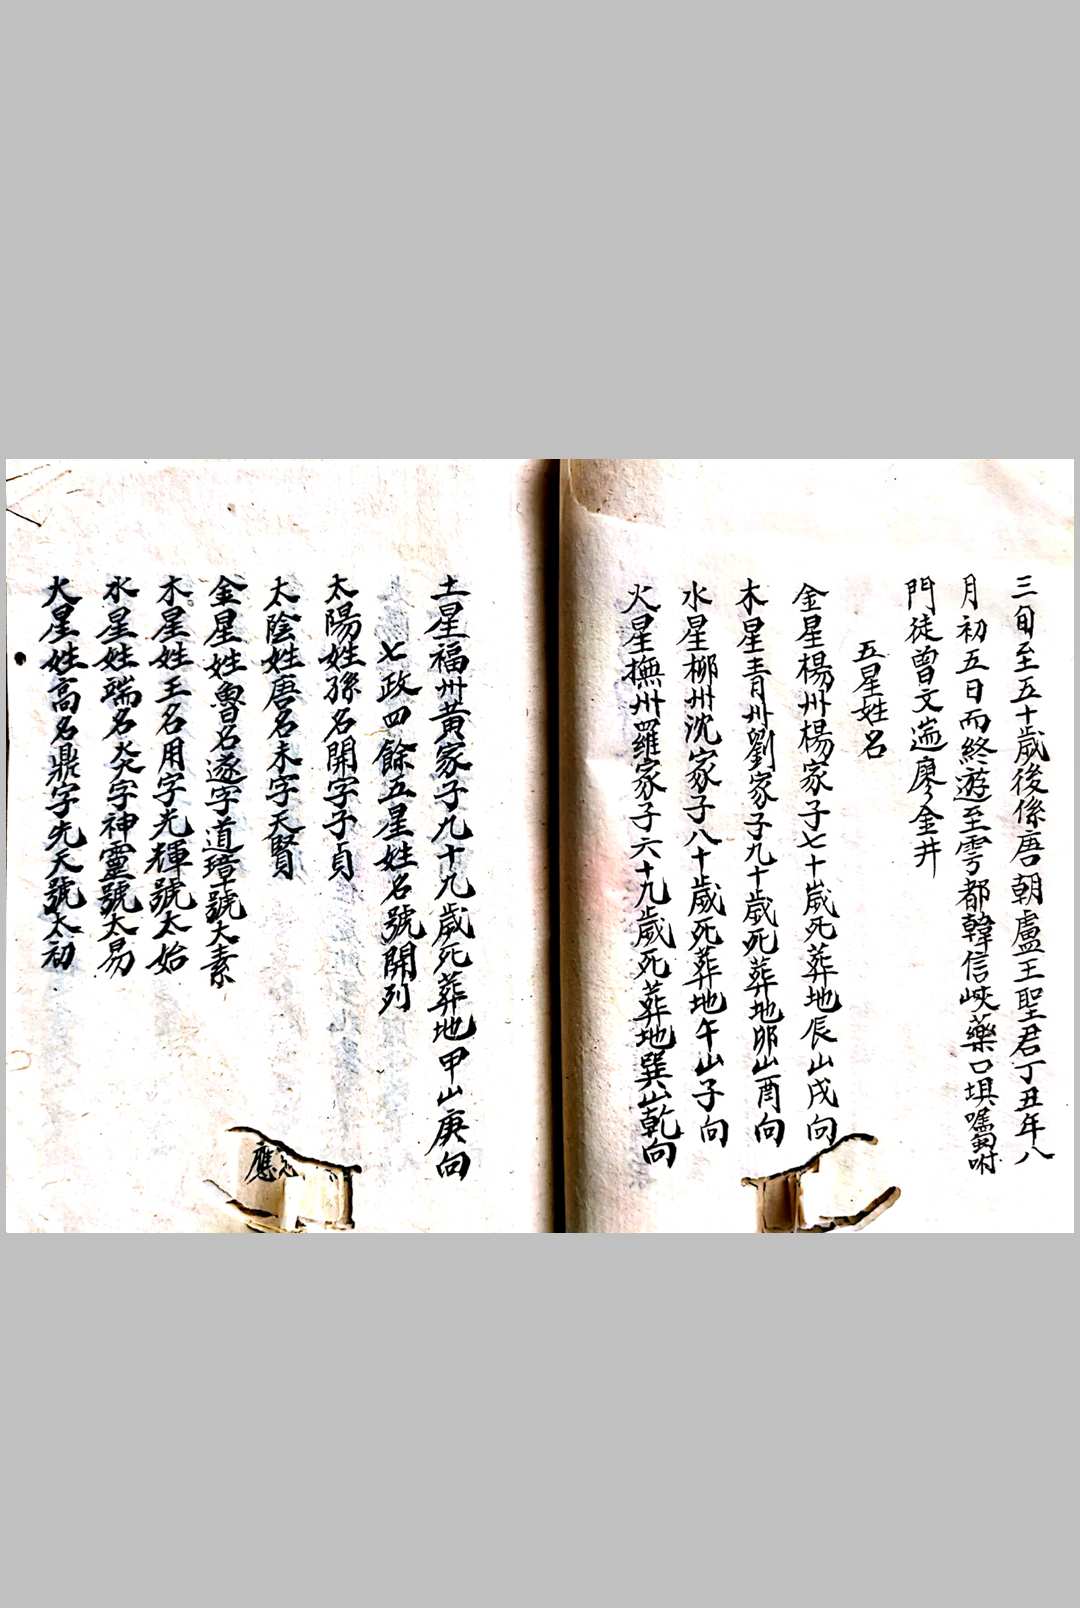 三旬至五十歲後係唐朝盧王聖君丁丑年八
月初五日而終遊至雩都韓信峽藥口垻囑咐
門徒曾文遄廖金井
五星姓名
金星楊州楊家子七十歲死葬地辰山戌向
木星青州劉家子九十歲死葬地卯山酉向
水星柳州沈家子八十歲死葬地午山子向
火星撫州羅家子六十九歲死葬地巽山乾向
土星福州黃家子九十九歲死葬地甲山庚向
七政四餘五星姓名號開列
太陽姓孫名開字子貞
太陰姓唐名末字天賢
金星姓魯名逐字道璋號太素
木星姓王名用字光輝號太始
水星姓端名炎字神靈號太易
火星姓高名鼎字先天號太初
應